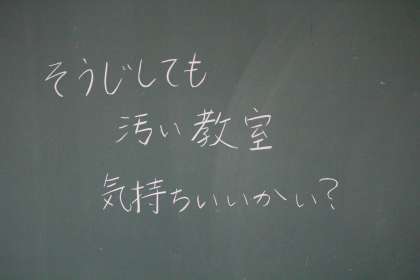 そうじしても
汚い教室
気持ちいいかい?